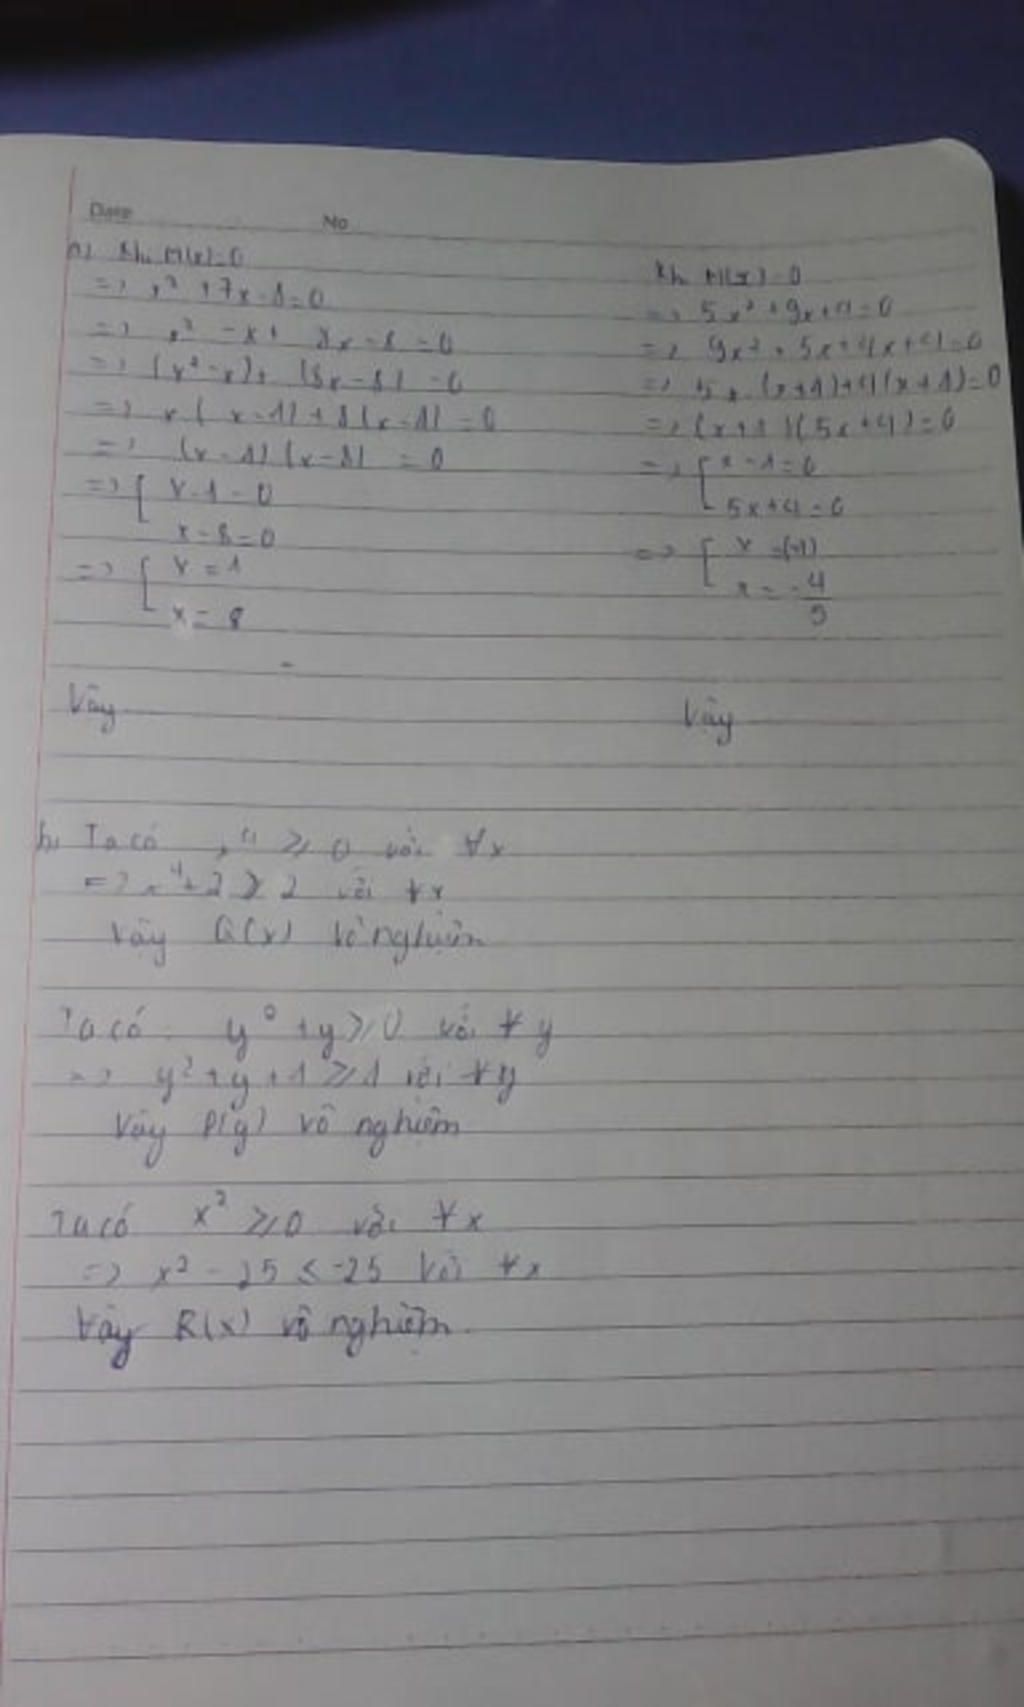 Date No
a) Khi M(x)=0
=> x² + 7x - 8 = 0
=> x² - x + 8x - 8 = 0
=> (x² - x) + (8x - 8) = 0
=> x(x-1) + 8(x-1) = 0
=> (x-1)(x-8) = 0
=> [ x-1 = 0
x - 8 = 0
=> [ x = 1
x = 8
Vậy
Kh N(x) = 0
=> 5x² + 9x + 4 = 0
=> 5x² + 5x + 4x + 4 = 0
=> 5x (x+1) + 4(x+1) = 0
=> (x+1)(5x+4) = 0
=> [ x - 1 = 0
5x + 4 = 0
=> [ x = (-1)
x = -4/5
Vậy
b, Ta có x⁴ ≥ 0 với ∀x
=> x⁴ + 2 ≥ 2 với ∀x
Vậy Q(x) vô nghiệm
Ta có y² + y ≥ 0 với ∀y
=> y² + y + 1 ≥ 1 với ∀y
Vậy P(y) vô nghiệm
Ta có x² ≥ 0 với ∀x
=> x² - 25 ≤ -25 với ∀x
Vậy R(x) vô nghiệm